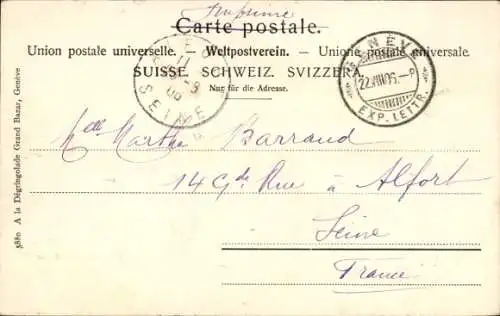 Imprimé
Carte postale.
Union postale universelle. – Weltpostverein. – Unione postale universale.
SUISSE. SCHWEIZ. SVIZZERA.
Nur für die Adresse.
GENÈVE
22.VIII.05.-8
EXP. LETTR.
SEINE
Melle Marthe Barraud
14 Gde Rue à Alfort
Seine
France
5880 A la Dégringolade Grand Bazar, Genève